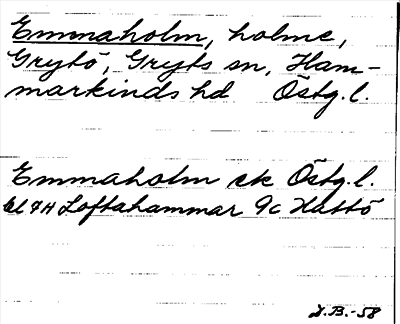 Emmaholm, holme,
Grytö, Gryts sn, Ham-
markinds hd Östg.l.
Emmaholm ek Östg.l.
bl 7H Loftahammar 9c Hattö
J.B.-58